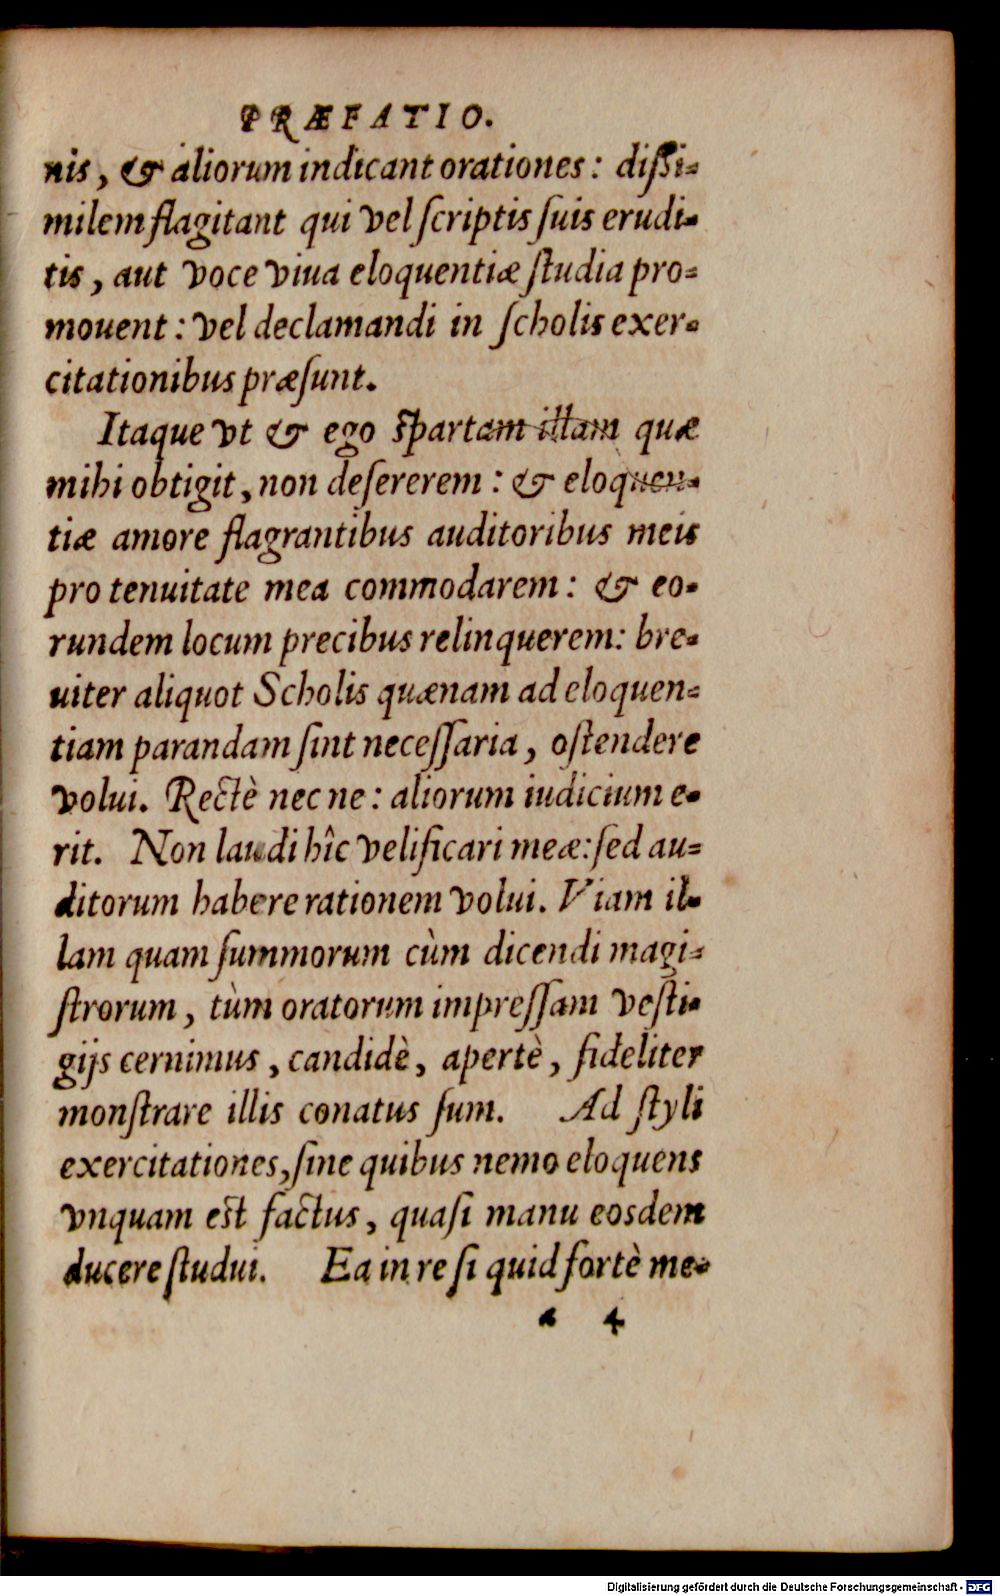 PRÆFATIO.
nis, & aliorum indicant orationes: dißi-
milem flagitant qui vel ſcriptis ſuis erudi-
tis, aut voce viua eloquentiæ ſtudia pro-
mouent: vel declamandi in ſcholis exer-
citationibus præſunt.
Itaque vt & ego ſpartam illam quæ
mihi obtigit, non deſererem: & eloquen-
tiæ amore flagrantibus auditoribus meis
pro tenuitate mea commodarem: & eo-
rundem locum precibus relinquerem: bre-
uiter aliquot Scholis quænam ad eloquen-
tiam parandam ſint neceſſaria, oſtendere
volui. Rectè nec ne: aliorum iudicium e-
rit. Non laudi hîc velificari meæ: ſed au-
ditorum habere rationem volui. Viam il-
lam quam ſummorum cùm dicendi magi-
ſtrorum, tùm oratorum impreſſam veſti-
gijs cernimus, candidè, apertè, fideliter
monſtrare illis conatus ſum. Ad ſtyli
exercitationes, ſine quibus nemo eloquens
vnquam eſt factus, quaſi manu eosdem
ducere ſtudui. Ea in re ſi quid fortè me-
a 4
Digitalisierung gefördert durch die Deutsche Forschungsgemeinschaft - DFG